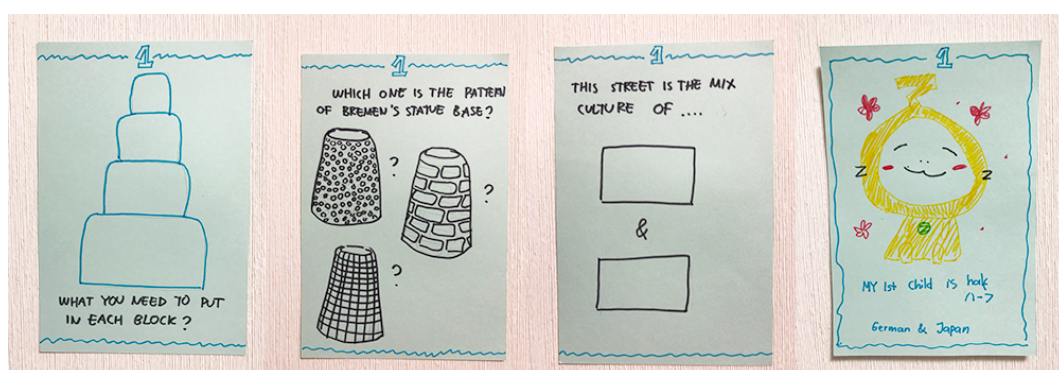 1
WHAT YOU NEED TO PUT
IN EACH BLOCK?
1
WHICH ONE IS THE PATTERN
OF BREMEN'S STATUE BASE?
?
?
?
1
THIS STREET IS THE MIX
CULTURE OF ....
&
1
Z
Z
MY 1st child is half
German & Japan